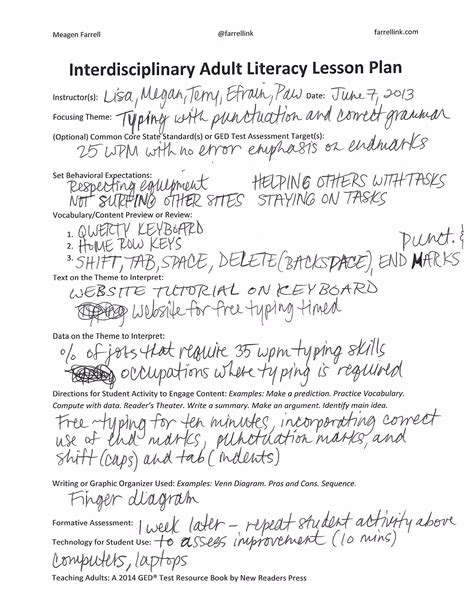 Meagen Farrell @farrellink farrellink.com
Interdisciplinary Adult Literacy Lesson Plan
Instructor(s): Lisa, Megan, Terry, Efrain, Paw Date: June 7, 2013
Focusing Theme: Typing with punctuation and correct grammar
(Optional) Common Core State Standard(s) or GED Test Assessment Target(s):
25 WPM with no error emphasis on endmarks
Set Behavioral Expectations:
Respecting equipment HELPING OTHERS WITH TASKS
NOT SURFING OTHER SITES STAYING ON TASKS
Vocabulary/Content Preview or Review:
1. QWERTY KEYBOARD
2. HOME ROW KEYS
3. SHIFT, TAB, SPACE, DELETE (BACKSPACE), Punct. & END MARKS
Text on the Theme to Interpret:
WEBSITE TUTORIAL ON KEYBOARD
website for free typing timed
Data on the Theme to Interpret:
% of jobs that require 35 wpm typing skills
occupations where typing is required
Directions for Student Activity to Engage Content: Examples: Make a prediction. Practice Vocabulary.
Compute with data. Reader's Theater. Write a summary. Make an argument. Identify main idea.
Free-typing for ten minutes, incorporating correct
use of end marks, punctuation marks, and
shift (caps) and tab (indents)
Writing or Graphic Organizer Used: Examples: Venn Diagram. Pros and Cons. Sequence.
Finger diagram
Formative Assessment: 1 week later - repeat student activity above
Technology for Student Use: to assess improvement (10 mins)
computers, laptops
Teaching Adults: A 2014 GED® Test Resource Book by New Readers Press